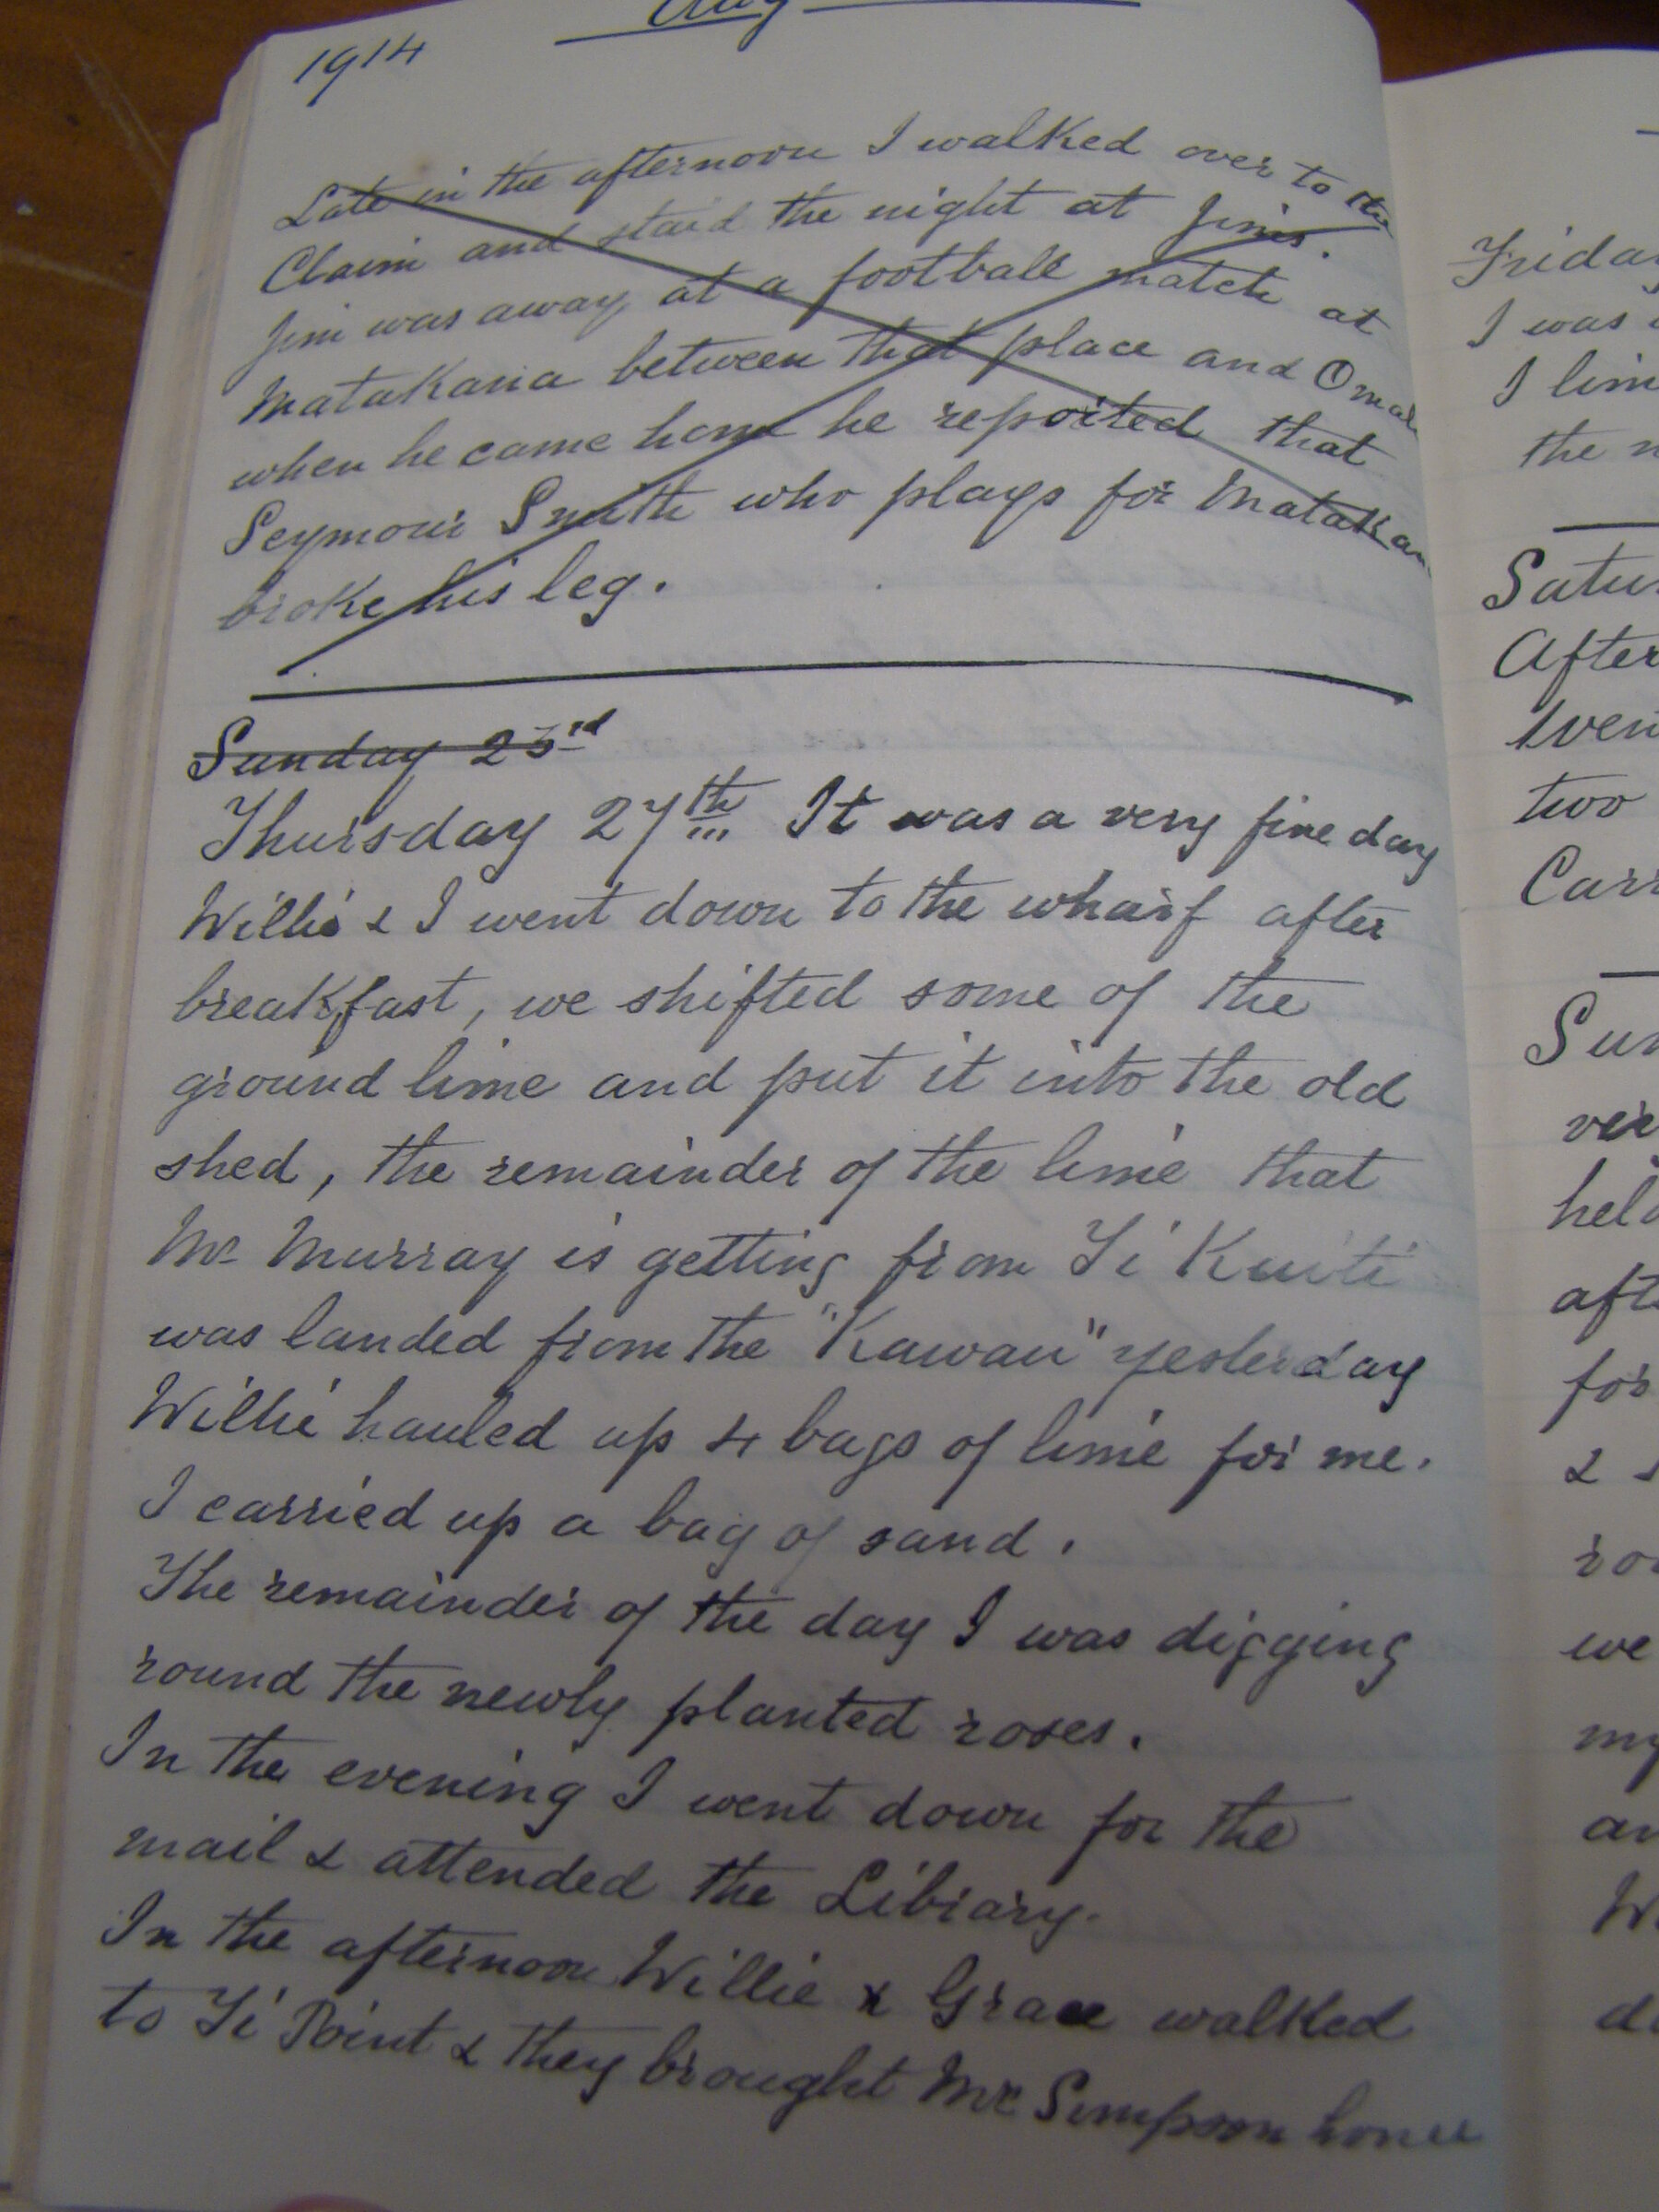 1914
Aug
Late in the afternoon I walked over to the
Claim and staid the night at Jim's.
Jim was away at a football match at
Matakana between that place and Omah
when he came home he reported that
Seymour Smith who plays for Matakan
broke his leg.
Sunday 23rd
Thursday 27th It was a very fine day
Willie & I went down to the wharf after
breakfast, we shifted some of the
ground lime and put it into the old
shed, the remainder of the lime that
Mr Murray is getting from Te Kuiti
was landed from the "Kawau" yesterday
Willie hauled up 4 bags of lime for me.
I carried up a bag of sand.
The remainder of the day I was digging
round the newly planted roses.
In the evening I went down for the
mail & attended the Library.
In the afternoon Willie & Grace walked
to Ti Point & they brought Mr Simpson home
Friday
I was
I lim
the
Satur
After
went
two
Carr
Sun
ver
held
afte
for
&
ro
we
my
an
W
d